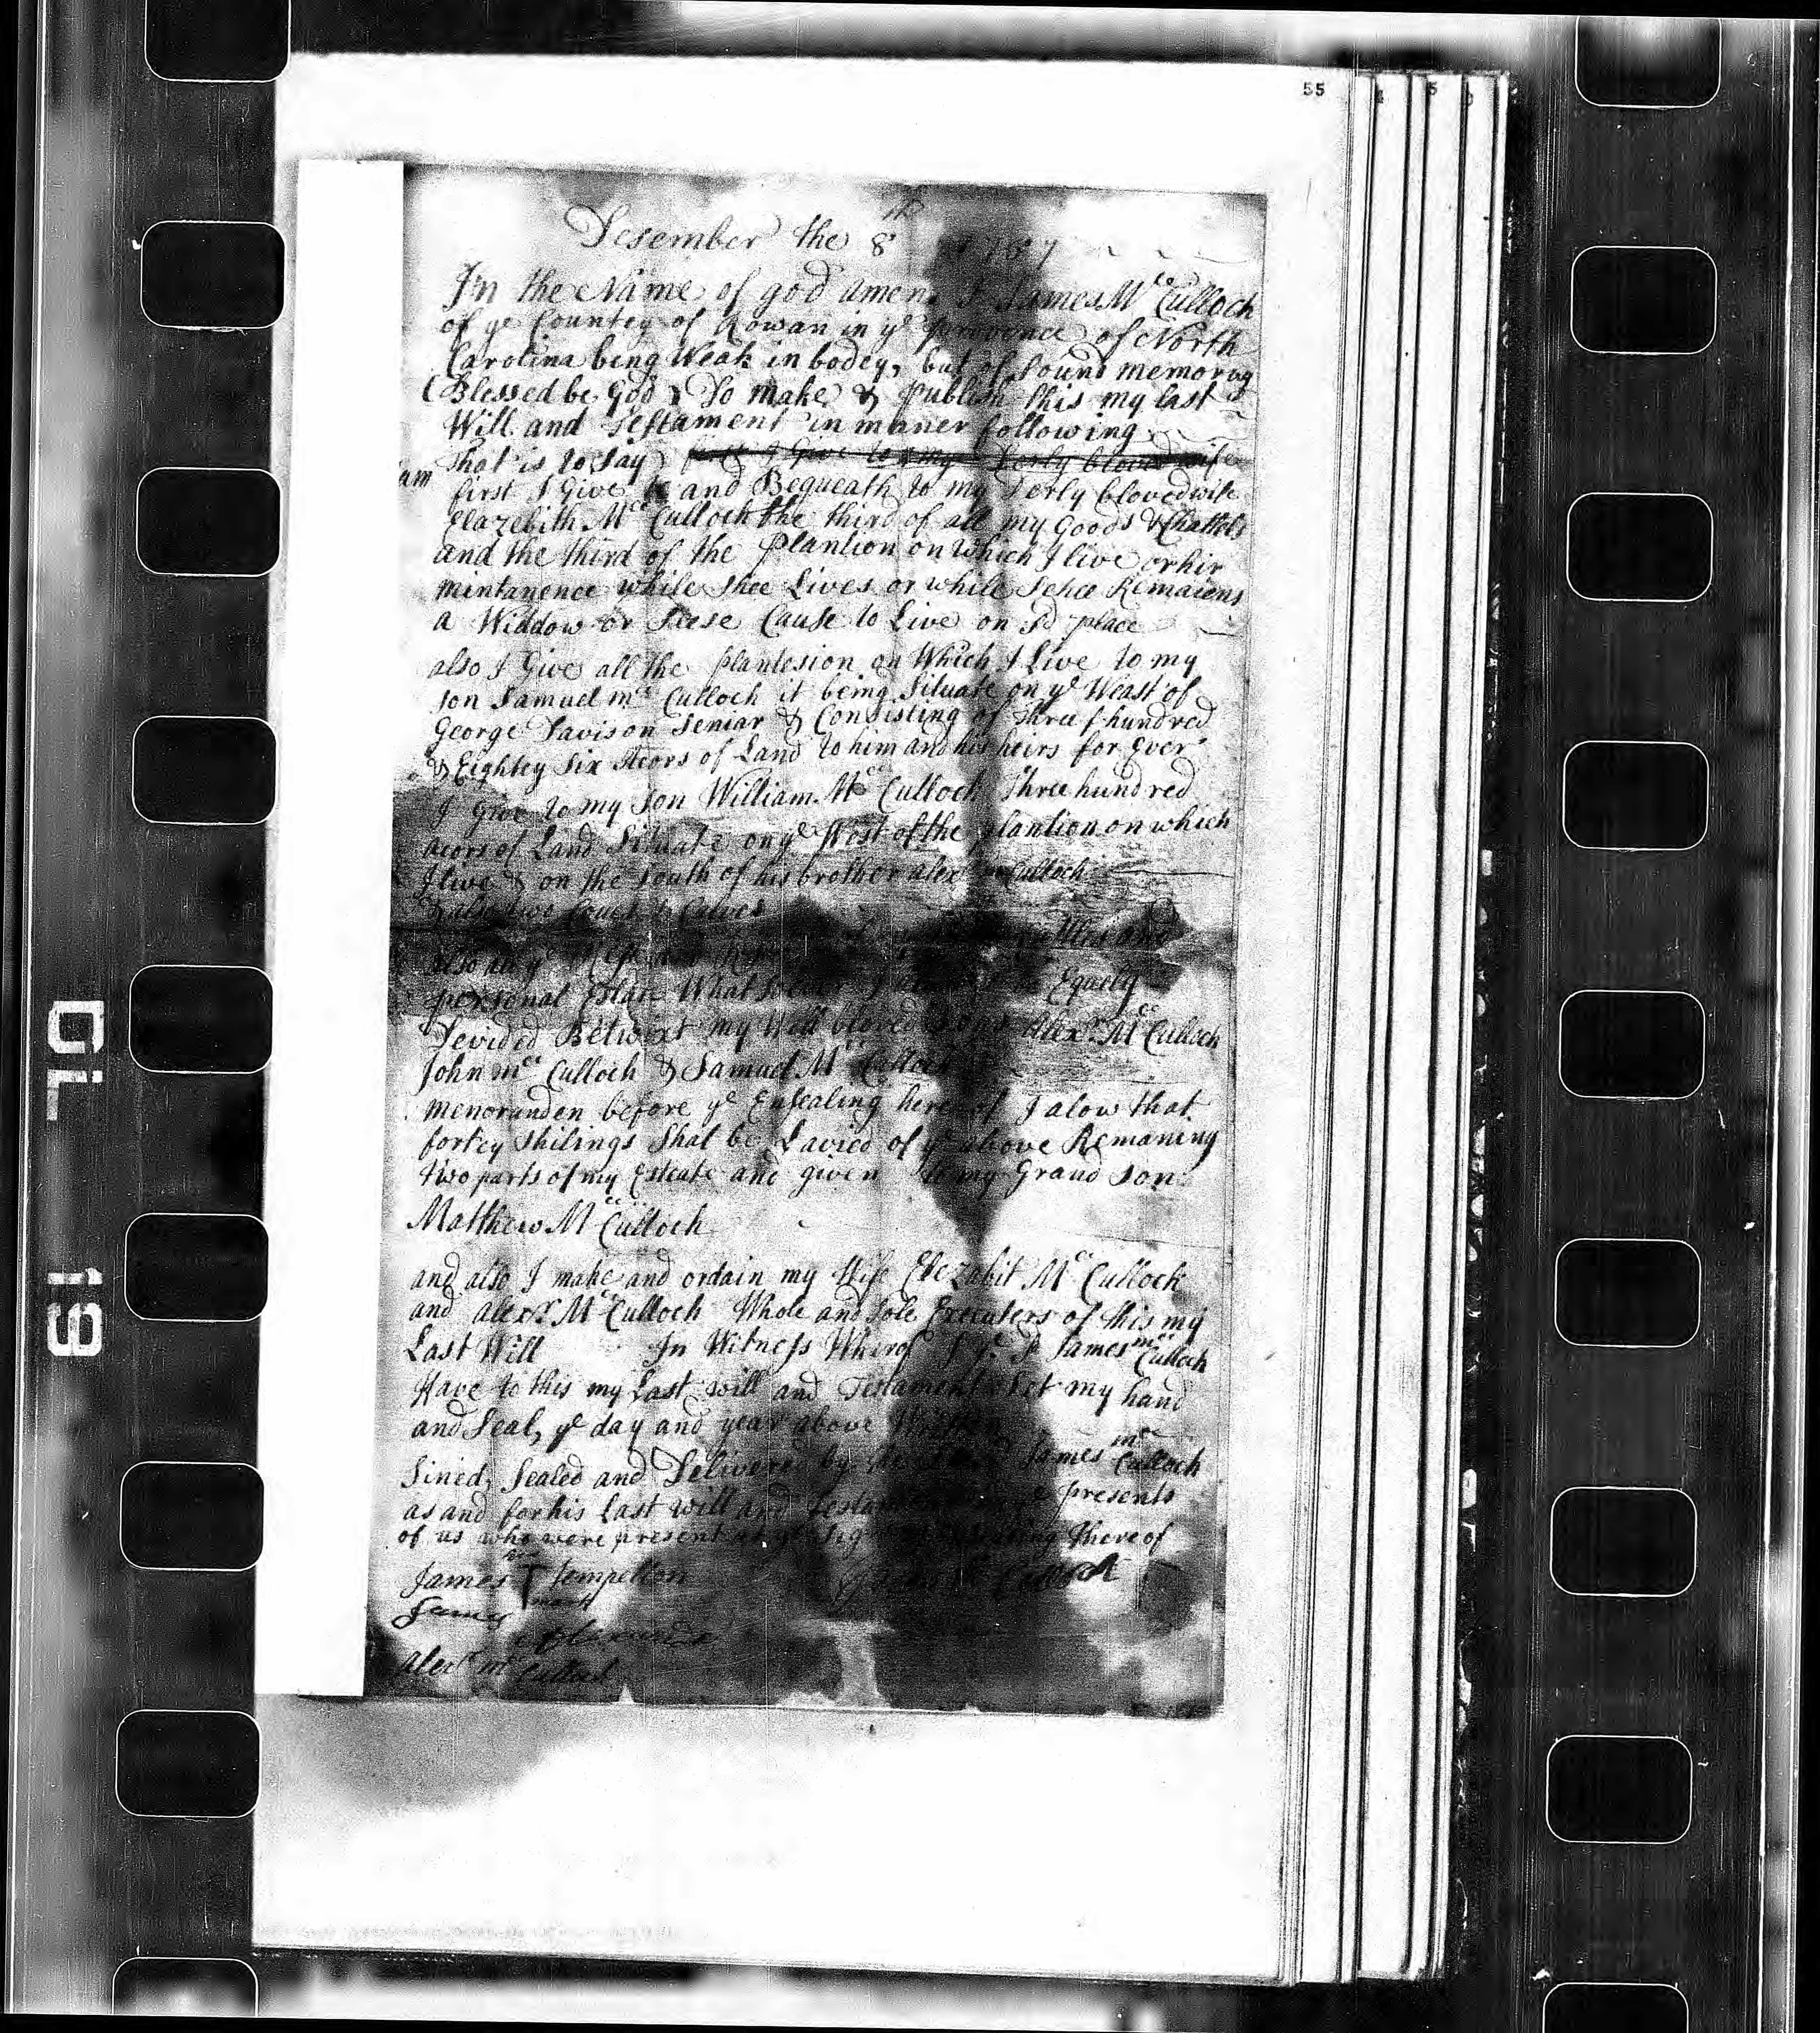 55
Desember the 8th
In the Name of god amen I James Mcc Culloch
of ye Countey of Rowan in ye provence of North
Carolina being Weak in bodey, but of Sound memorey
(Blessed be God) Do make & Publish this my last
Will and Testament in maner following
That is to Say first I Give to my Derly bloved wife
first I Give and Bequeath to my Derly bloved wife
Elazebith Mcc Culloch the third of all my Goods & Chattels
and the third of the plantion on which I live or hir
mintanence while Shee Lives or while Schee Remaiens
a Widdow or Seese Cause to Live on sd place
also I Give all the plantesion on Which I Live to my
son Samuel mcc Culloch it being Situate on ye Weast of
George Davison Seniar & Consisting of Three hundred
& Eightey Six Acors of Land to him and his heirs for Ever
I Give to my Son William Mcc Culloch Three hundred
acors of Land Situate on ye West of the plantion on which
I live & on the South of his brother alexr mcc Culloch
& also two Cows & Calves
also all ye
personal Estate What soever Equely
Devided Betwixt my Well bloved Sons Alexr Mcc Culloch
John mcc Culloch & Samuel Mcc Culloch
memoranden before ye Ensealing here of I alow that
fortey Shilings Shal be Lavied of ye above Remaning
two parts of my Esteate and given to my Grand Son
Matthew Mcc Culloch
and also I make and ordain my Wife Elezabit Mcc Culloch
and alexr Mcc Culloch Whole and Sole Executers of this my
Last Will In Witness Wherof I ye sd James mcc Culloch
Have to this my Last will and Testament Set my hand
and Seal, ye day and year above Written
Sined, Sealed and Delivered by the James mcc Culloch
as and for his Last will and Testament presents
of us who were present at ye Sealing there of
James T Tempelton Culloch
his mark
James Alexander
Alexr mcc Culloch
DL 19